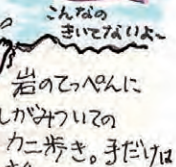 こんなの
きいてないよ～
岩のてっぺんに
しがみついての
カニ歩き。手だけは